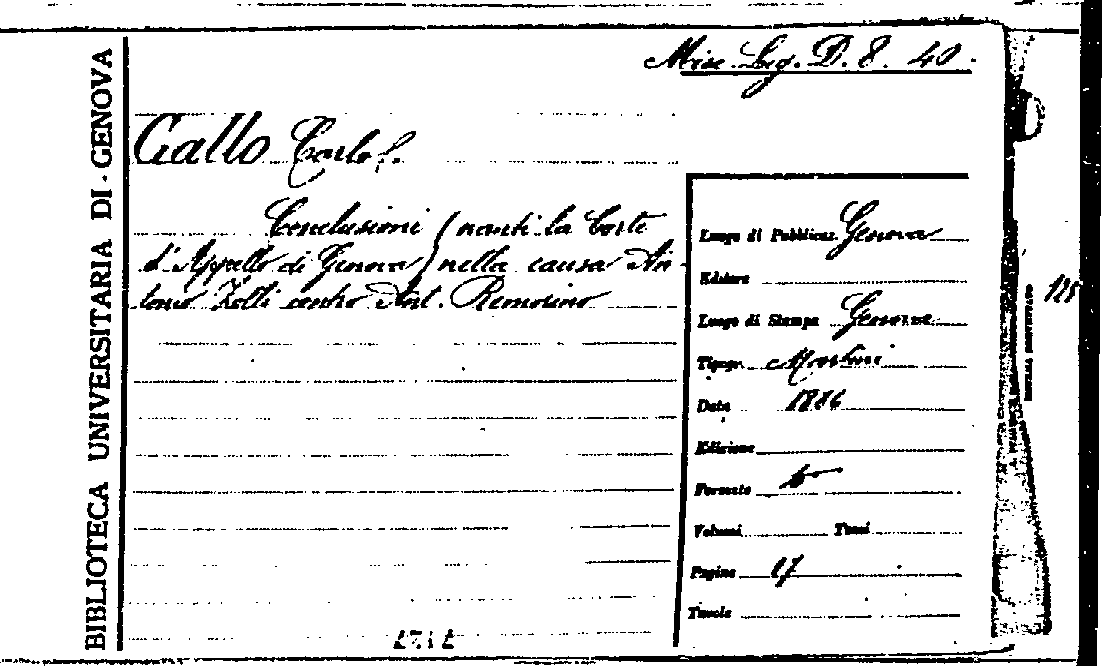 Misc. Lig. D. 8. 40.
Gallo Carlo f.
Conclusioni (nanti la Corte
d'Appello di Genova) nella causa An-
tonio Zolli contro Ant. Remorino
Luogo di Pubblicaz. Genova
Editore
Luogo di Stampa Genova
Tipogr. Martini
Data 1886
Edizione
Formato
Volumi Tomi
Pagine 17
Tavole
BIBLIOTECA UNIVERSITARIA DI GENOVA
128